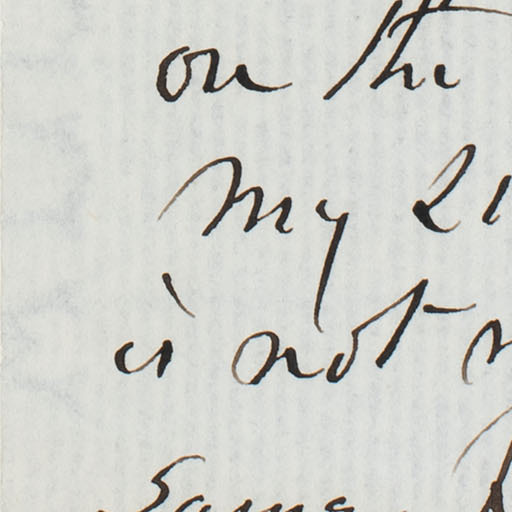 on the
My
is not
Same